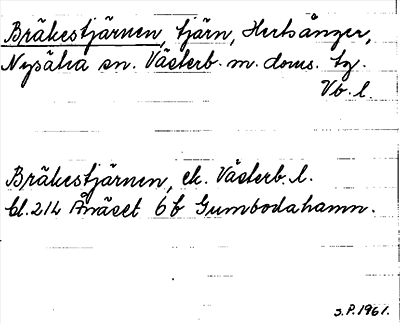 Bräkestjärnen, tjärn, Hertsånger,
Nysätra sn. Västerb. m. doms. tg.
Vb. l.
Bräkestjärnen, ek. Västerb. l.
bl. 214 Ånäset 6b Gumbodahamn.
S.P. 1961.